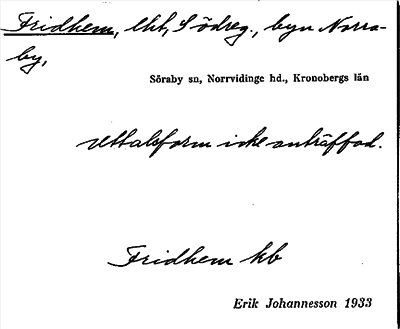 Fridhem, lht, S ödreg., byn Norra-
by,
Söraby sn, Norrvidinge hd., Kronobergs län
uttalsform icke anträffad.
Fridhem kb
Erik Johannesson 1933